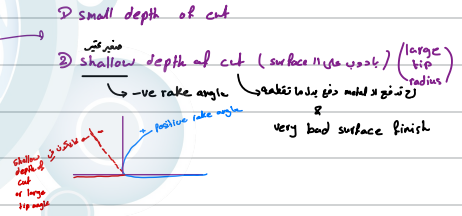 ① small depth of cut
صغير كتير
② shallow depth of cut ( surface بادوب على الـ ) ( large tip radius )
→ -ve rake angle
→ رح تدفع الـ metal دفع بدل ما تقطعه
&
very bad surface finish
+ positive rake angle
shallow
depth of
cut
or large
tip angle